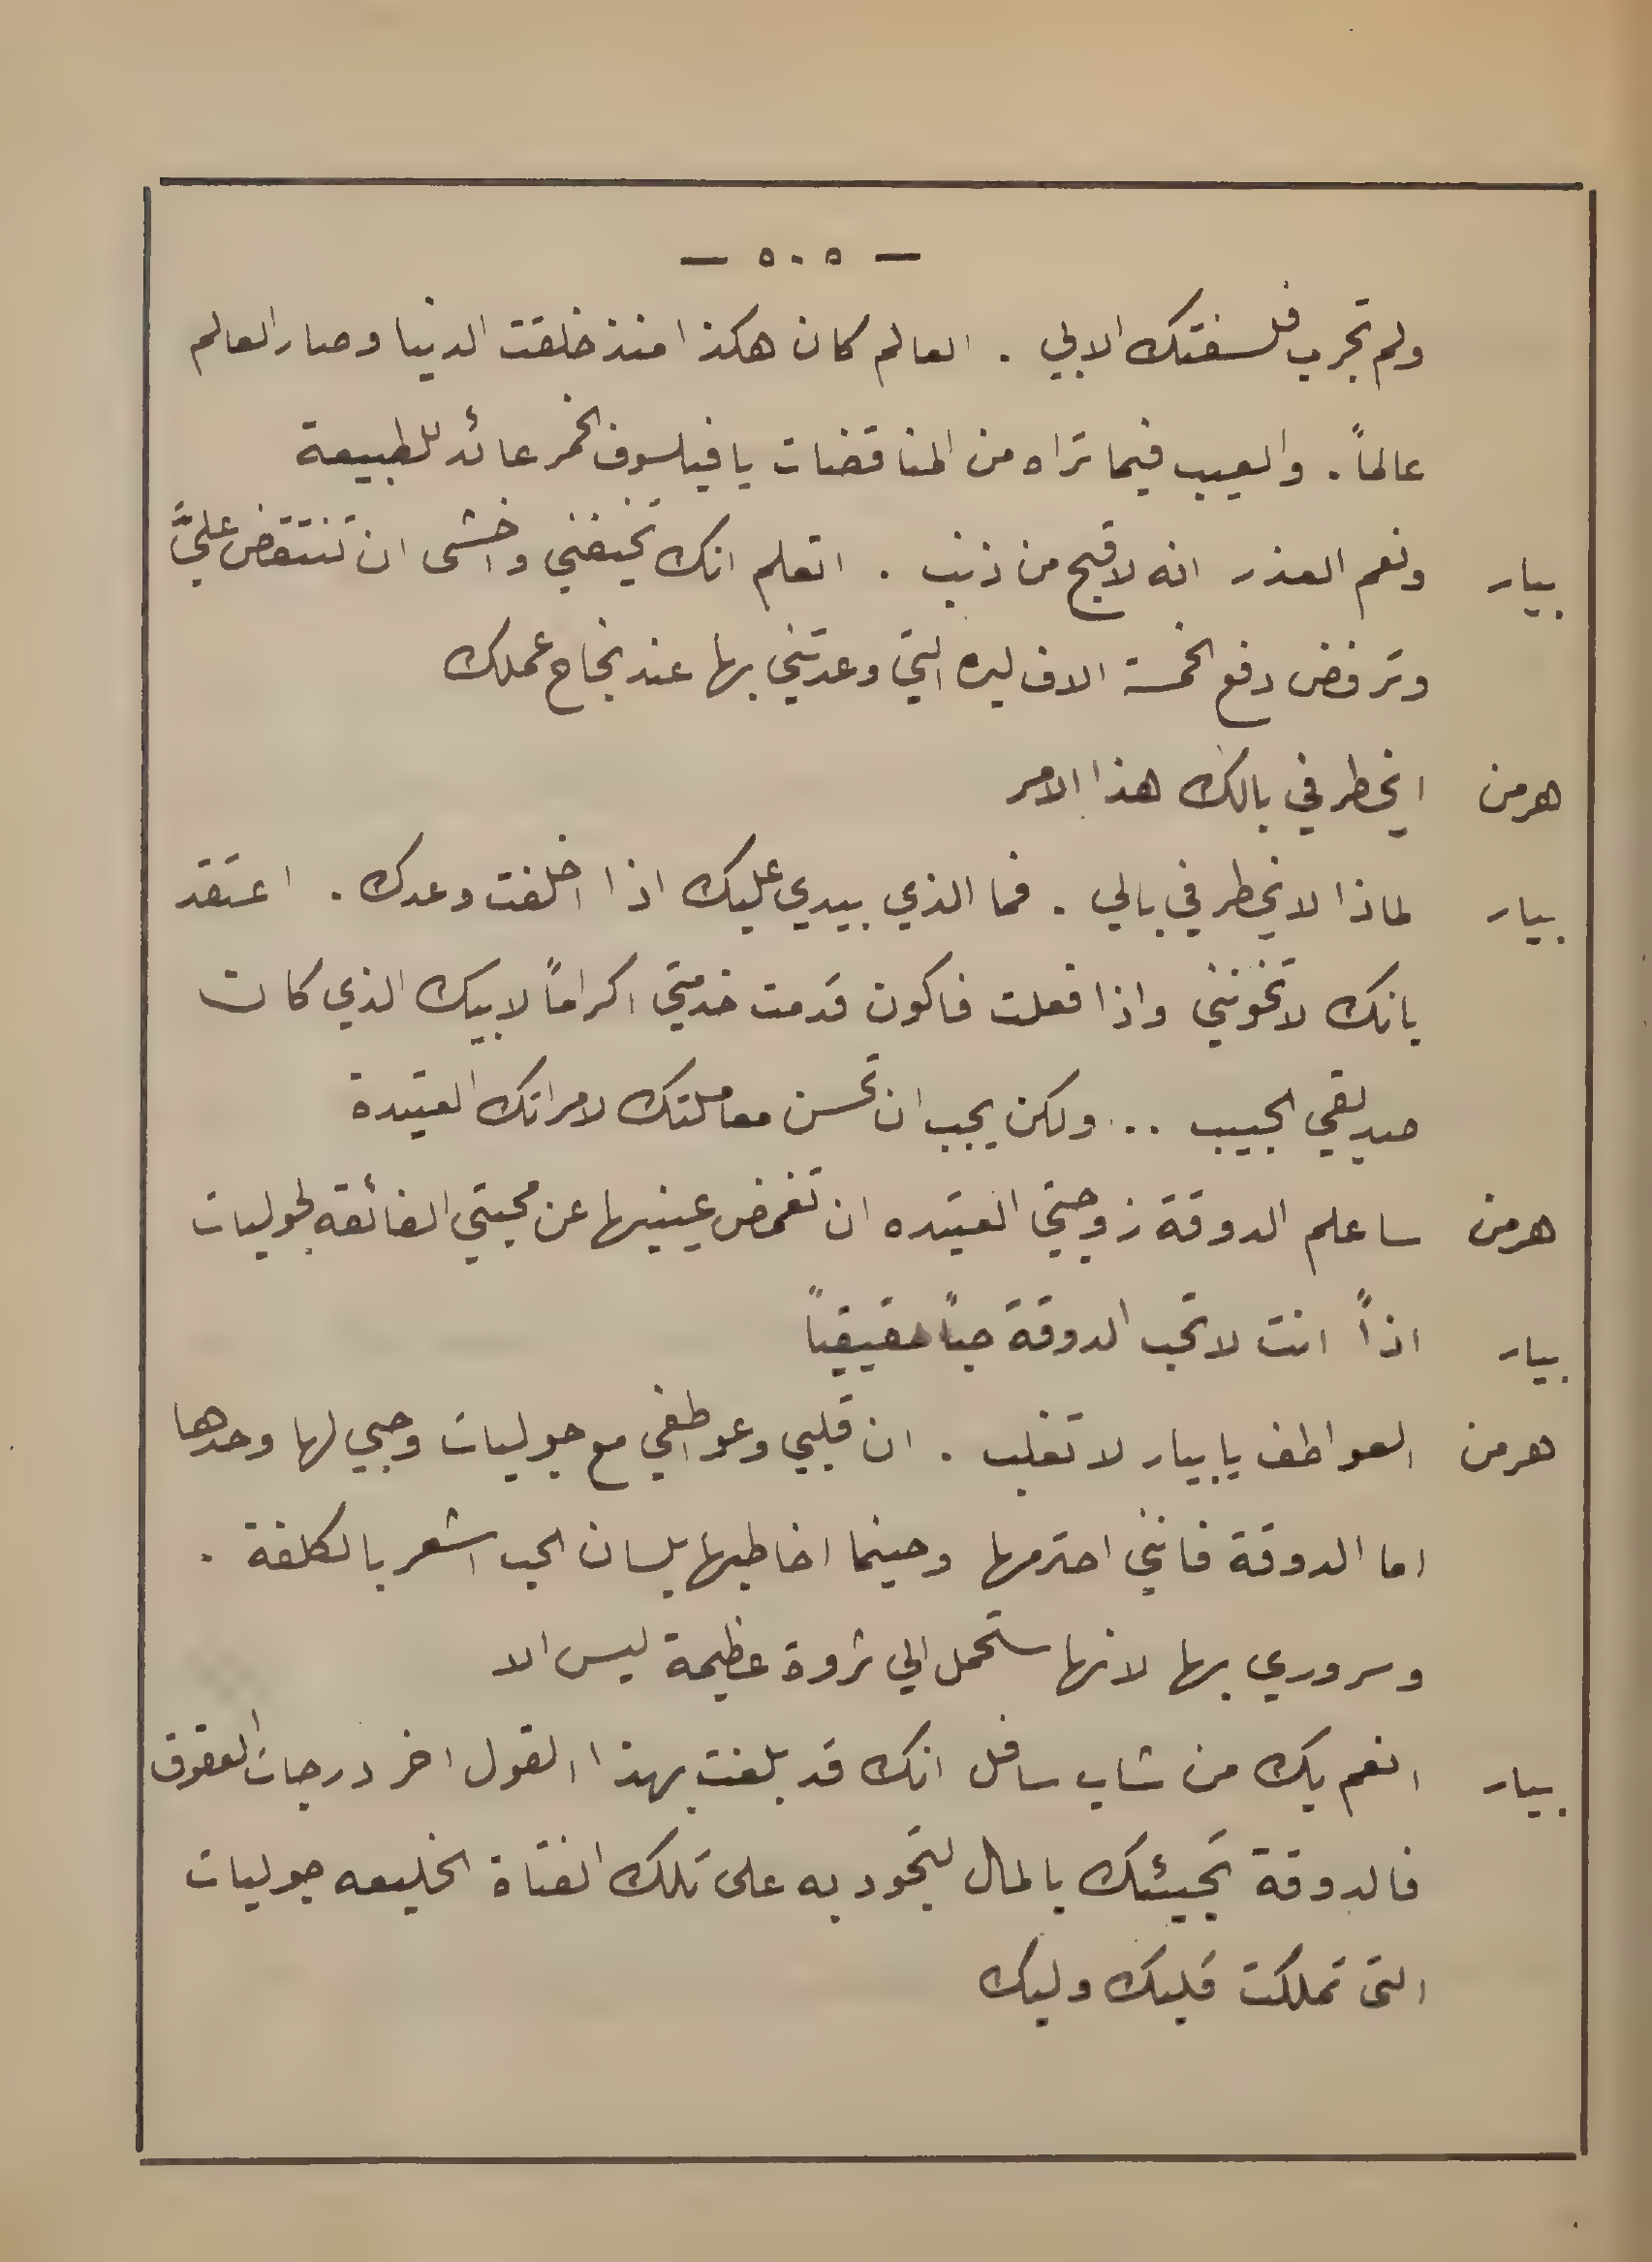 — ٥٠٥ —
ولم تجرب فلسفتك الا بي . العالم كان هكذا منذ خلقت الدنيا وصار العالم
عالماً . والعيب فيما تراه من المناقضات يا فيلسوف الخمر عائد للطبيعة
بيار ونعم العذر انه لاقبح من ذنب . اتعلم انك تخيفني واخشى ان تنتقض عليَّ
وترفض دفع الخمسة الاف ليره التي وعدتني بها عند نجاح عملك
هرمن ايخطر في بالك هذا الامر
بيار لماذا لا يخطر في بالي . فما الذي بيدي عليك اذا اخلفت وعدك . اعتقد
بانك لا تخونني واذا فعلت فاكون قدمت خدمتي اكراماً لابيك الذي كان
صديقي الحبيب ... ولكن يجب ان تحسن معاملتك لامراتك العتيدة
هرمن ساعلم الدوقة زوجتي العتيده ان تغمض عينيها عن محبتي الفائقه لجوليات
بيار اذاً انت لا تحب الدوقة حباً حقيقياً
هرمن العواطف يا بيار لا تغلب . ان قلبي وعواطفي مع جوليات وحبي لها وحدها
اما الدوقة فانني احترمها وحينما اخاطبها بلسان الحب اشعر بالكلفة .
وسروري بها لانها ستحمل الي ثروة عظيمة ليس الا
بيار انعم بك من شاب سافل انك قد بلغت بهذا القول اخر درجات العقوق
فالدوقة تجيئك بالمال لتجود به على تلك الفتاة الخليعه جوليات
التي تملكت قلبك ولبك